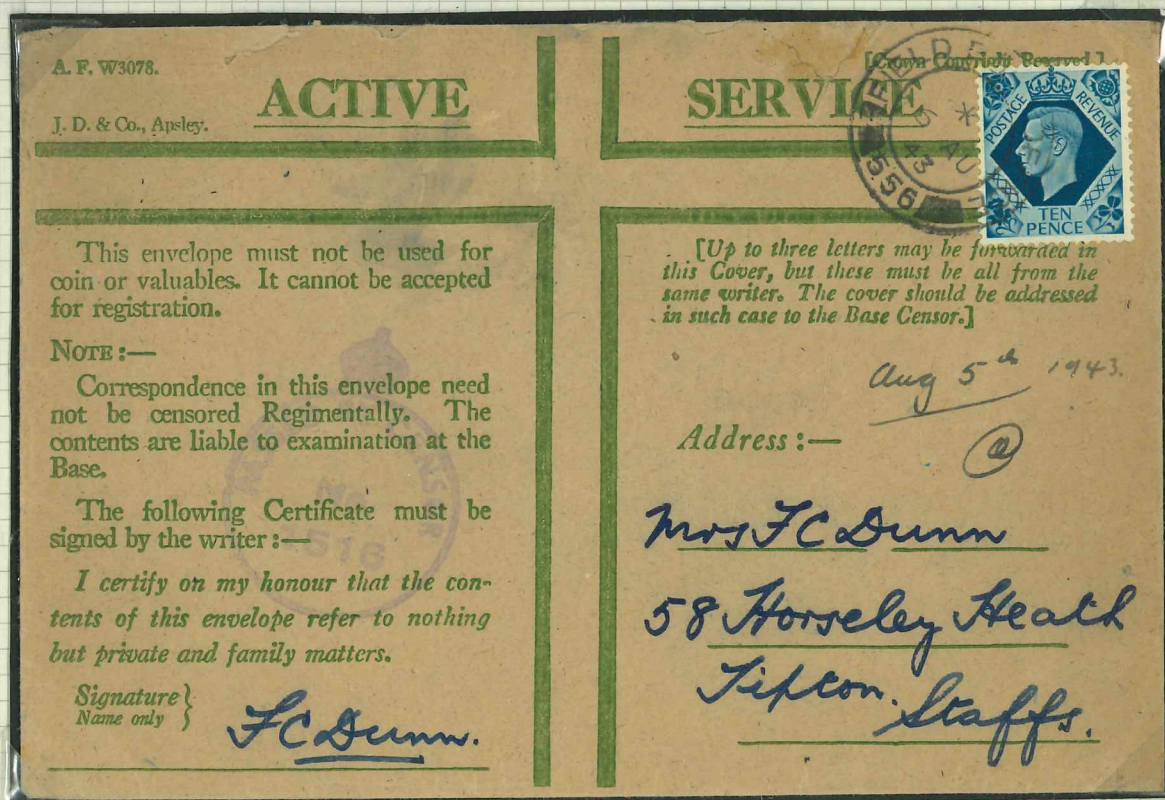 A. F. W3078.
[Crown Copyright Reserved]
ACTIVE SERVICE
J. D. & Co., Apsley.
FIELD
5 *
43 AU
556
POSTAGE REVENUE
TEN
PENCE
This envelope must not be used for
coin or valuables. It cannot be accepted
for registration.
NOTE :—
Correspondence in this envelope need
not be censored Regimentally. The
contents are liable to examination at the
Base.
The following Certificate must be
signed by the writer :—
I certify on my honour that the con-
tents of this envelope refer to nothing
but private and family matters.
Signature }
Name only
F C Dunn.
No
[Up to three letters may be forwarded in
this Cover, but these must be all from the
same writer. The cover should be addressed
in such case to the Base Censor.]
Aug 5th 1943.
Address :—
a
Mrs F C Dunn
58 Horseley Heath
Tipton.
Staffs.